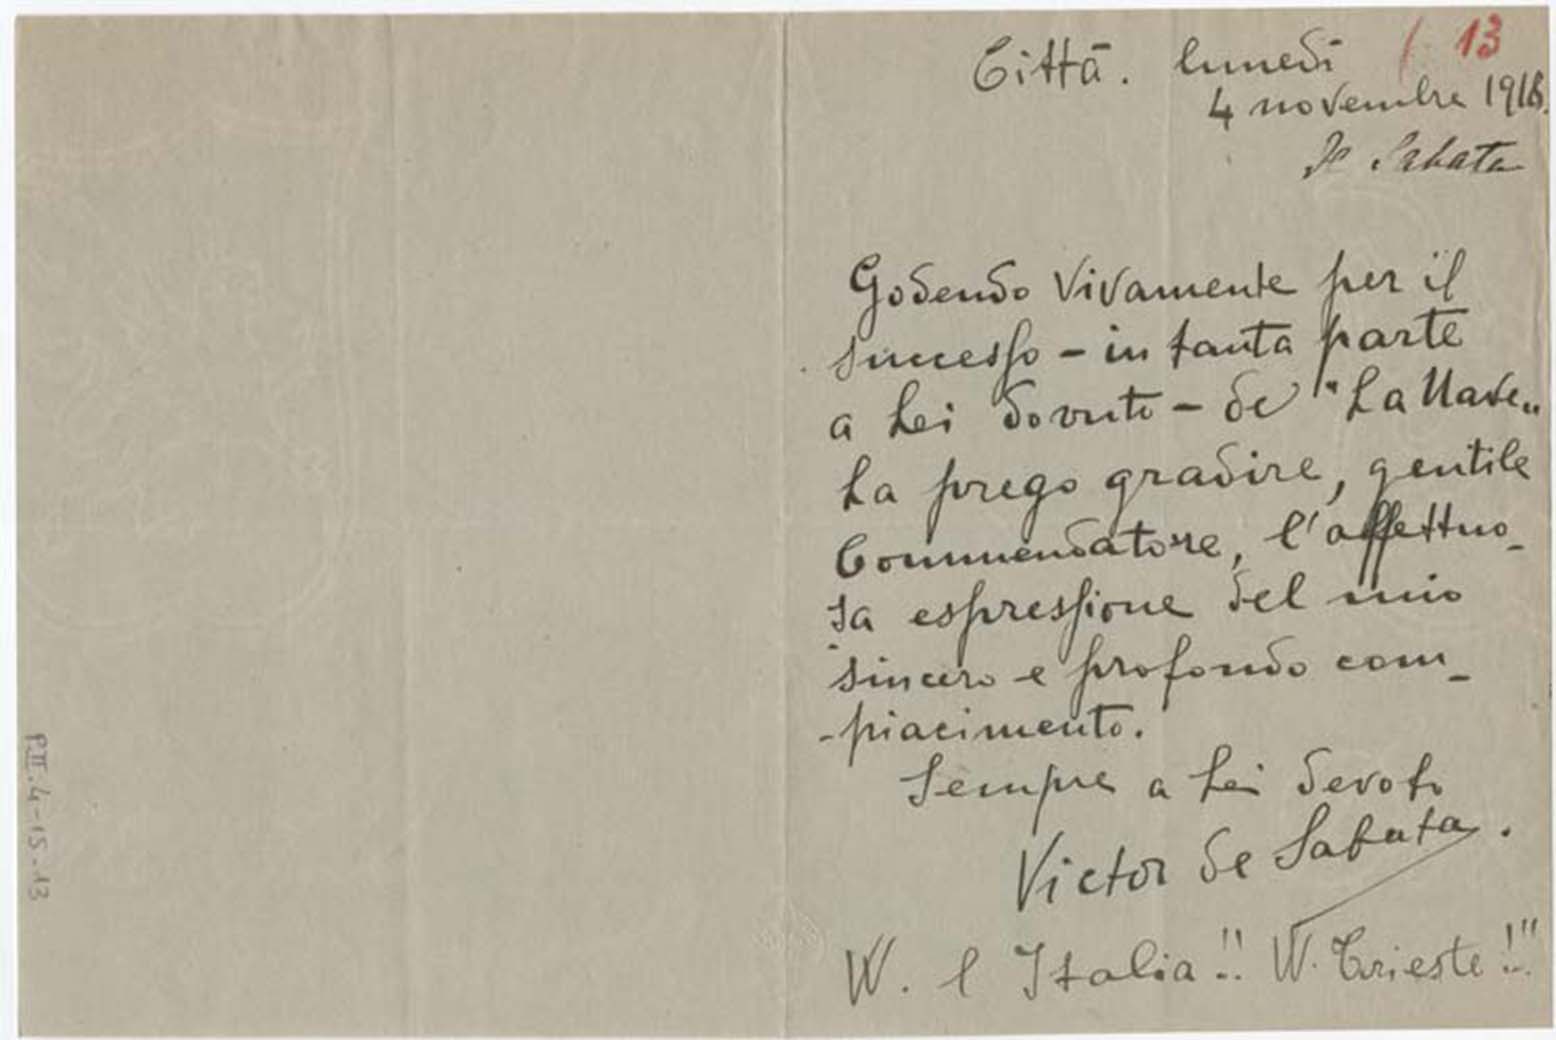 13
Città. lunedì
4 novembre 1918.
De Sabata
Godendo vivamente per il
successo - in tanta parte
a Lei dovuto - de "La Nave"
La prego gradire, gentile
Commendatore, l'affettuo-
sa espressione del mio
sincero e profondo com-
-piacimento.
Sempre a Lei devoto
Victor de Sabata.
W. l Italia!! W. Trieste!!!
PII.4-15.13